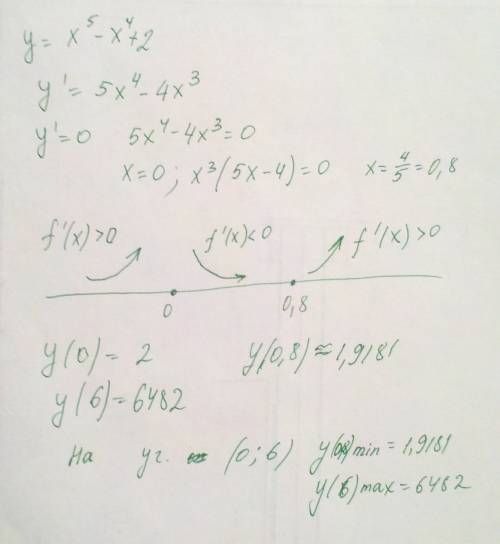 y = x⁵ - x⁴ + 2
y' = 5x⁴ - 4x³
y' = 0 5x⁴ - 4x³ = 0
x = 0 ; x³(5x - 4) = 0 x = 4/5 = 0,8
f'(x) > 0 f'(x) < 0 f'(x) > 0
0 0,8
y(0) = 2 y(0,8) ≈ 1,9181
y(6) = 6482
На уч. (0; 6) y(0,8) min = 1,9181
y(6) max = 6482